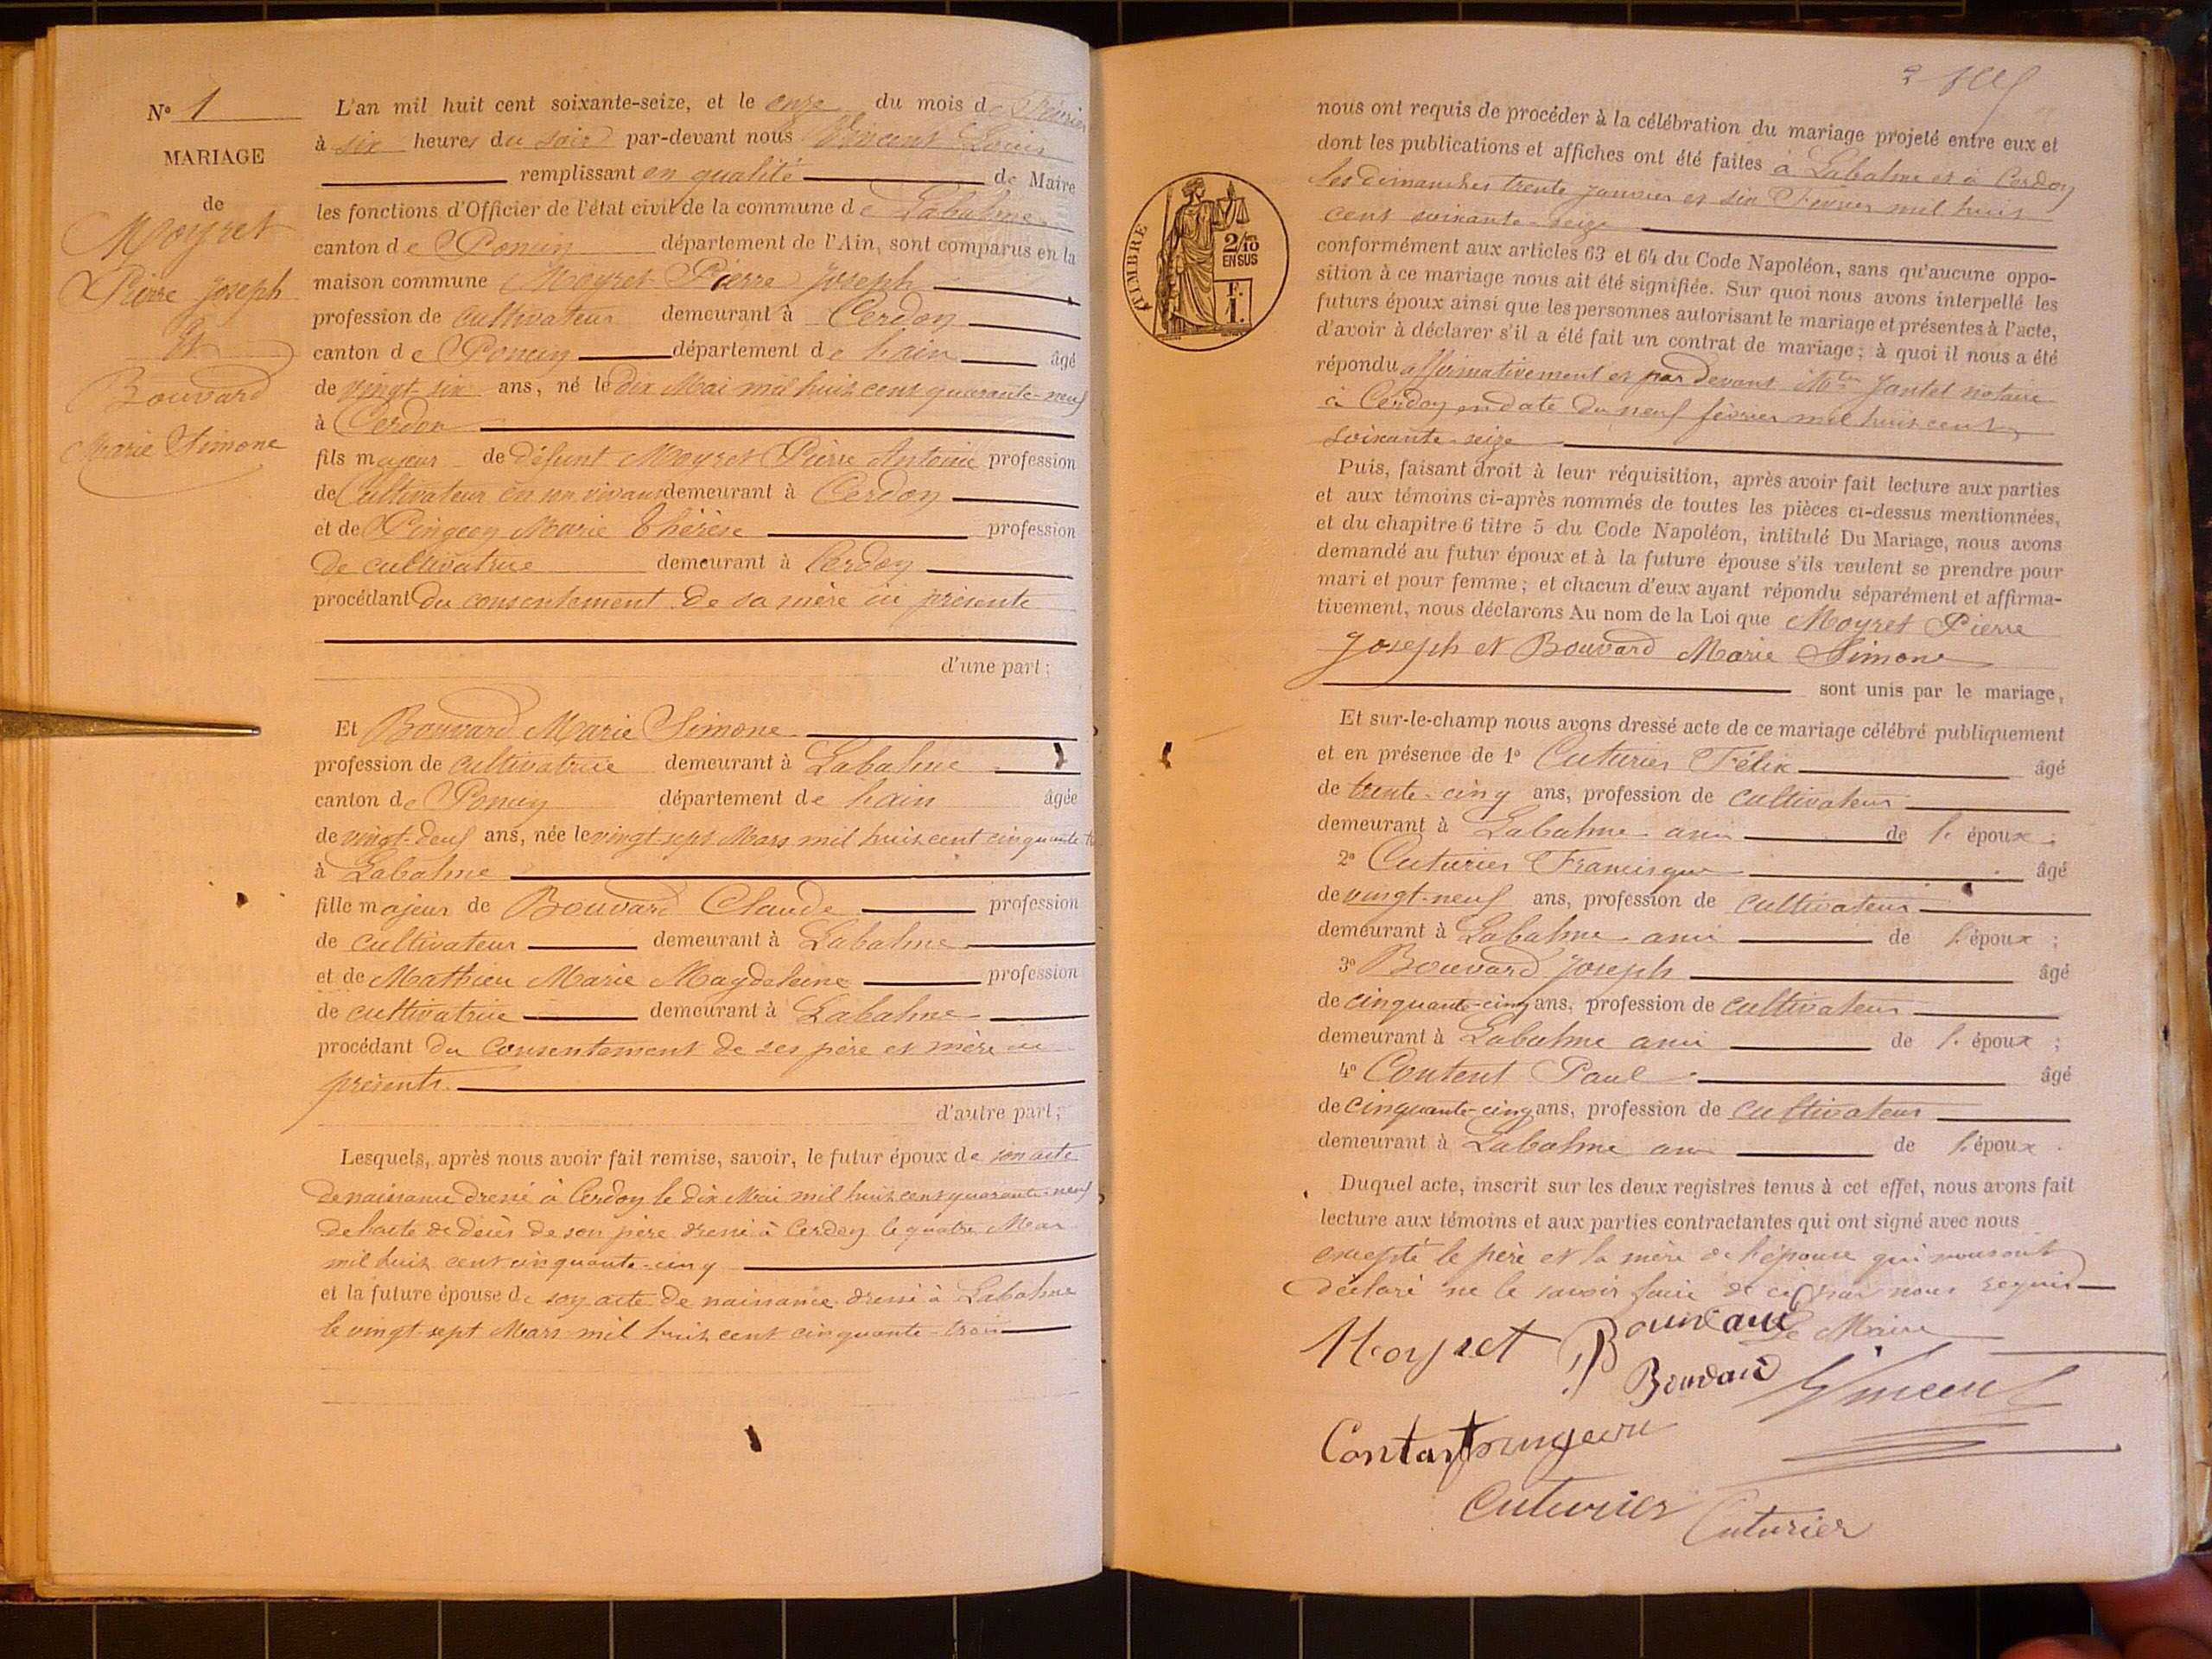 N° 1
MARIAGE
de
Moyret
Pierre Joseph
Et
Bouvard
Marie Simone
L'an mil huit cent soixante-seize, et le onze du mois de Février
à six heures du soir par-devant nous Vincent Louis
remplissant en qualité de Maire
les fonctions d'Officier de l'état civil de la commune de Labalme
canton de Poncin département de l'Ain, sont comparus en la
maison commune Moyret Pierre Joseph
profession de cultivateur demeurant à Cerdon
canton de Poncin département de l'ain âgé
de vingt-six ans, né le dix Mai mil huit cent quarante-neuf
à Cerdon
fils majeur de défunt Moyret Pierre Antoine profession
de Cultivateur en son vivant demeurant à Cerdon
et de Pingeon Marie Thérèse profession
de cultivatrice demeurant à Cerdon
procédant du consentement de sa mère ici présente
d'une part ;
Et Bouvard Marie Simone
profession de cultivatrice demeurant à Labalme
canton de Poncin département de l'ain âgée
de vingt-deux ans, née le vingt-sept Mars mil huit cent cinquante
à Labalme
fille majeur de Bouvard Claude profession
de cultivateur demeurant à Labalme
et de Mathieu Marie Magdeleine profession
de cultivatrice demeurant à Labalme
procédant du Consentement de ses père et mère ici
présents
d'autre part ;
Lesquels, après nous avoir fait remise, savoir, le futur époux de son acte
de naissance dressé à Cerdon le dix Mai mil huit cent quarante-neuf
de l'acte de décès de son père dressé à Cerdon le quatre Mars
mil huit cent cinquante-cinq
et la future épouse de son acte de naissance dressé à Labalme
le vingt-sept Mars mil huit cent cinquante-trois
nous ont requis de procéder à la célébration du mariage projeté entre eux et
dont les publications et affiches ont été faites à Labalme et à Cerdon
les dimanches trente janvier et six Février mil huit
cent soixante-seize
TIMBRE
2/10
EN SUS
F.
1.
conformément aux articles 63 et 64 du Code Napoléon, sans qu'aucune oppo-
sition à ce mariage nous ait été signifiée. Sur quoi nous avons interpellé les
futurs époux ainsi que les personnes autorisant le mariage et présentes à l'acte,
d'avoir à déclarer s'il a été fait un contrat de mariage ; à quoi il nous a été
répondu affirmativement et par devant Jantet notaire
à Cerdon en date du neuf février mil huit cent
soixante-seize
Puis, faisant droit à leur réquisition, après avoir fait lecture aux parties
et aux témoins ci-après nommés de toutes les pièces ci-dessus mentionnées,
et du chapitre 6 titre 5 du Code Napoléon, intitulé Du Mariage, nous avons
demandé au futur époux et à la future épouse s'ils veulent se prendre pour
mari et pour femme ; et chacun d'eux ayant répondu séparément et affirma-
tivement, nous déclarons Au nom de la Loi que Moyret Pierre
Joseph et Bouvard Marie Simone
sont unis par le mariage,
Et sur-le-champ nous avons dressé acte de ce mariage célébré publiquement
et en présence de 1° Cuturier Félix âgé
de trente-cinq ans, profession de cultivateur
demeurant à Labalme ami de l'époux ;
2° Cuturier Francisque âgé
de vingt-neuf ans, profession de cultivateur
demeurant à Labalme ami de l'époux ;
3° Bouvard Joseph âgé
de cinquante-cinq ans, profession de cultivateur
demeurant à Labalme ami de l'époux ;
4° Content Paul âgé
de cinquante-cinq ans, profession de cultivateur
demeurant à Labalme ami de l'époux.
Duquel acte, inscrit sur les deux registres tenus à cet effet, nous avons fait
lecture aux témoins et aux parties contractantes qui ont signé avec nous
excepté le père et la mère de l'épouse qui nous ont
déclaré ne le savoir faire de ce par nous requis
Le Maire
Moyret
Bouvard
Vincent
Cuturier Cuturier